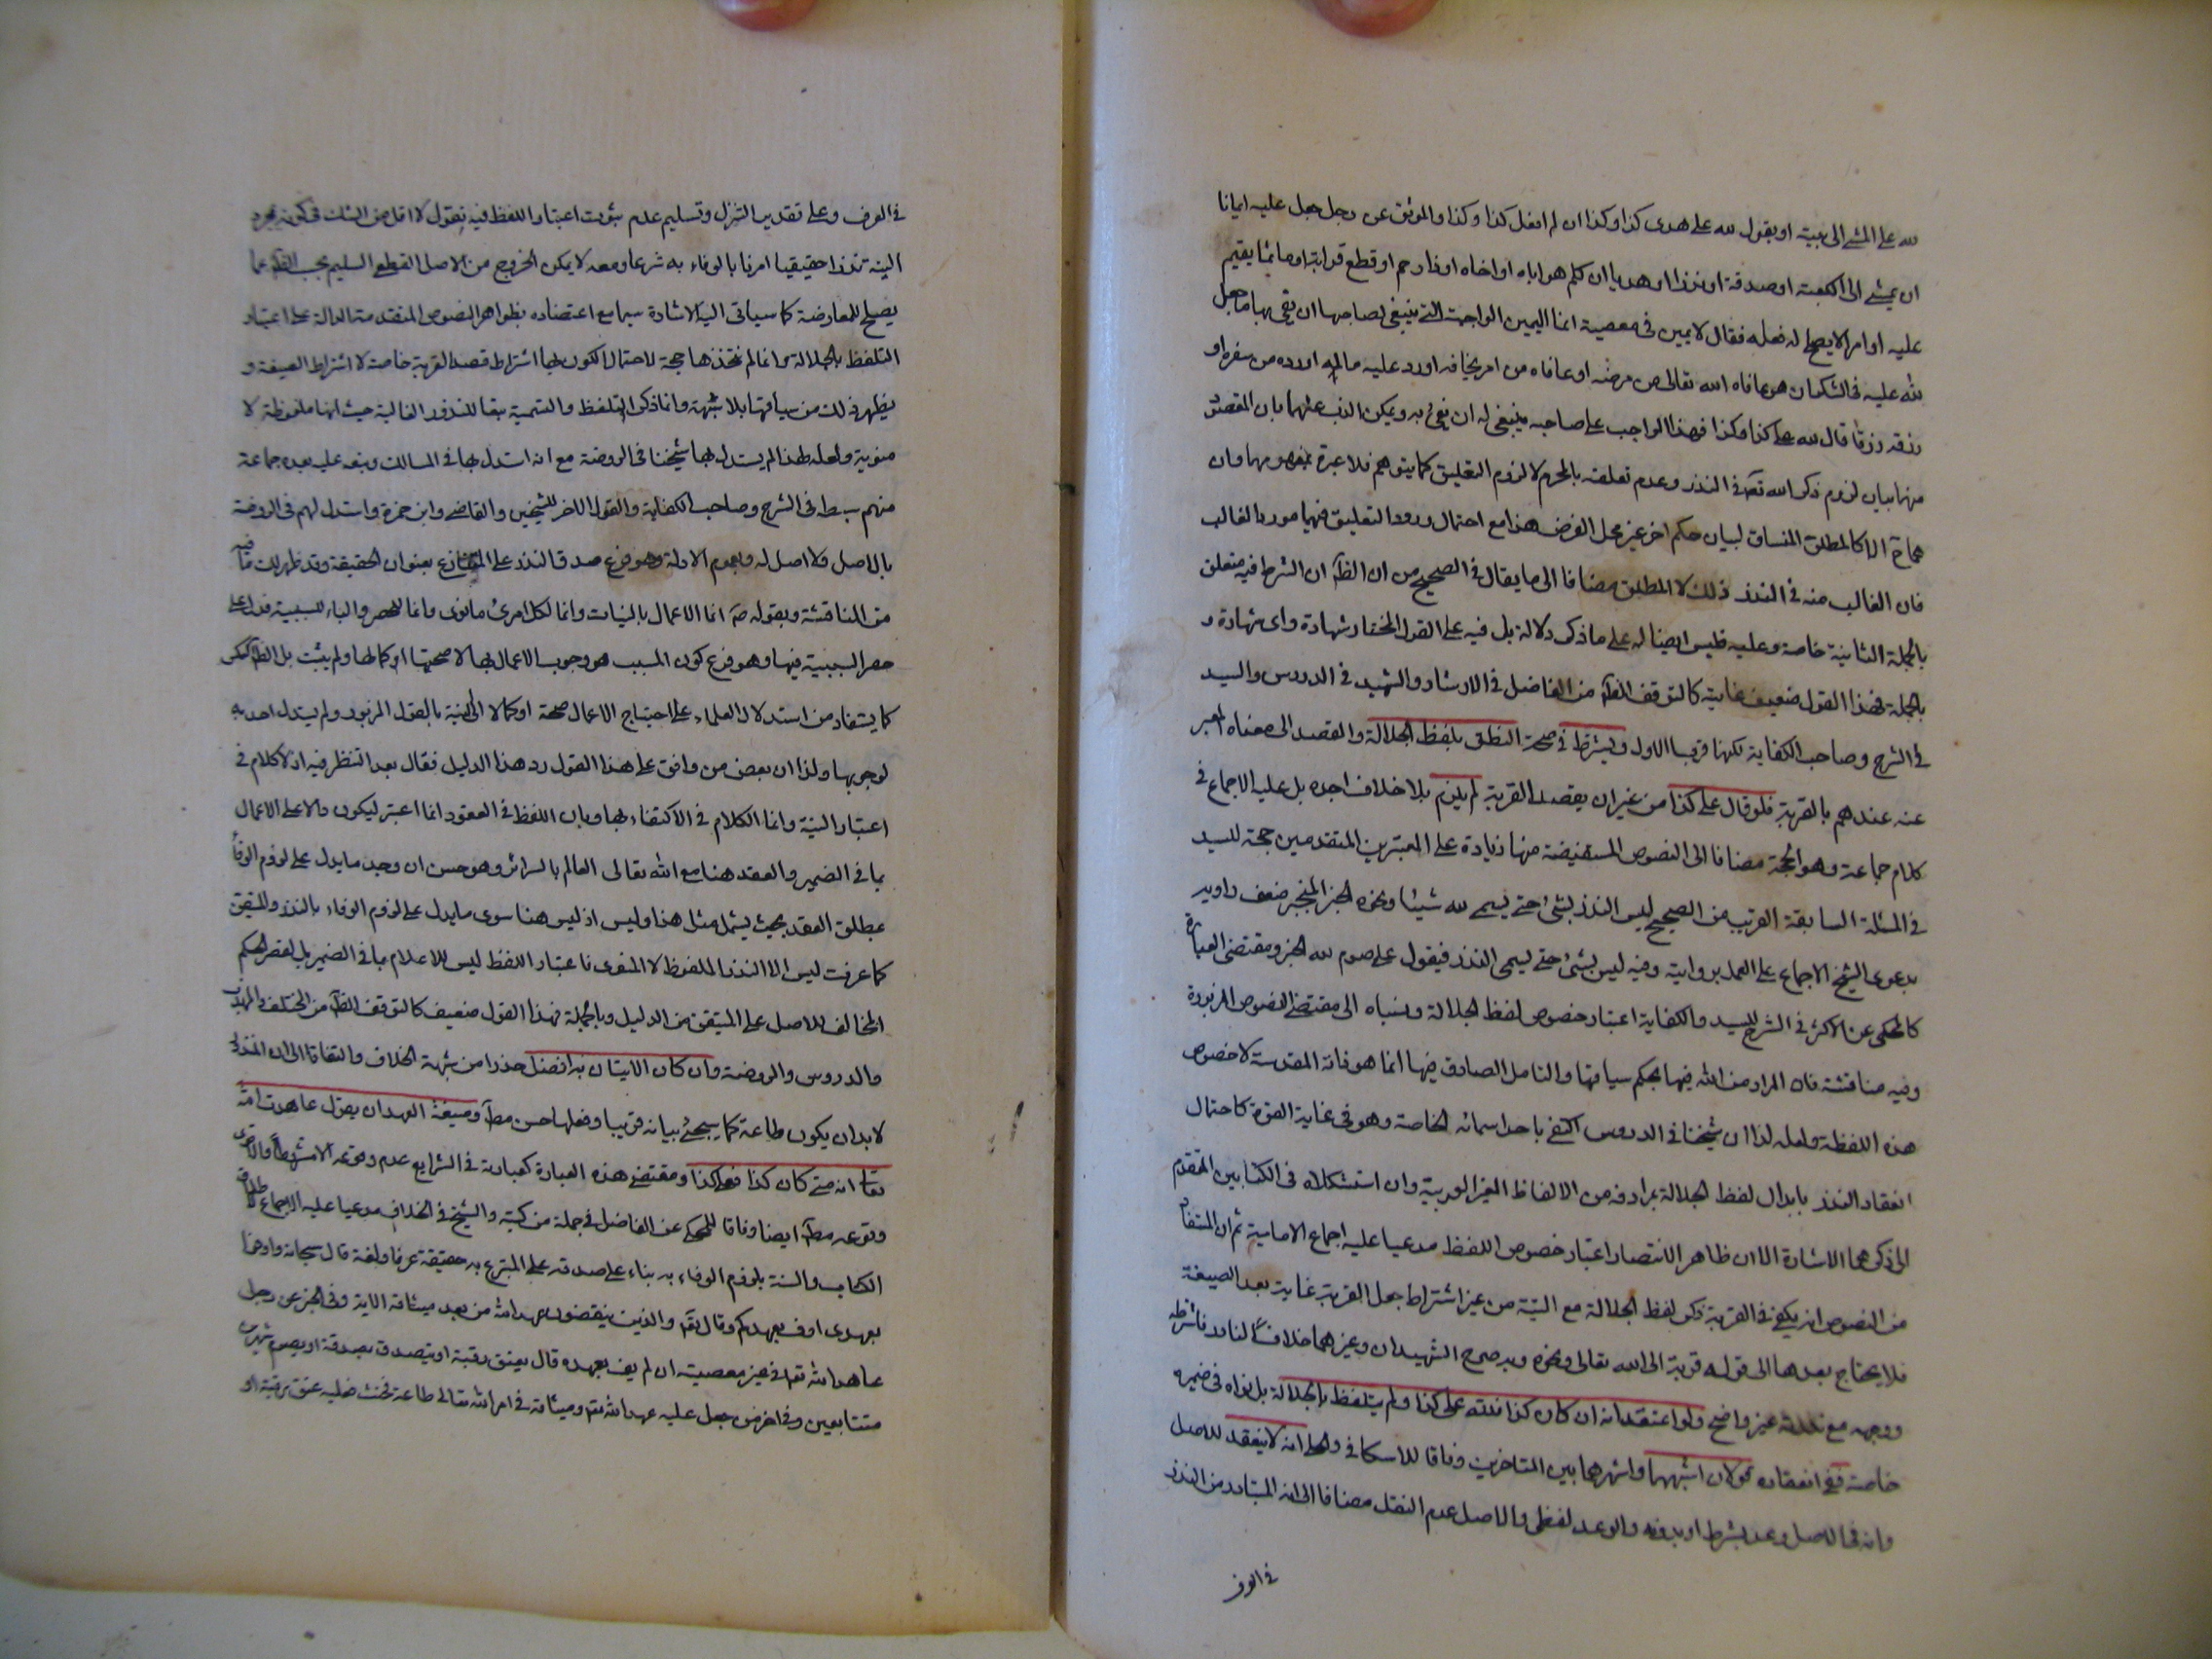 لله علي المشي الى بيته او يقول لله علي هدى كذا وكذا ان لم افعل كذا وكذا والموثق عن رجل جعل عليه ايمانا
ان يمشي الى الكعبة او صدقة او نذرا او هديا ان كلم هو اباه او اخاه او ذا رحم او قطع قرابة او ماثما يقيم
عليه او امرا لا يصلح له فعله فقال لا يمين في معصية انما اليمين الواجبة التي ينبغي لصاحبها ان يفي بها ما جعل
لله عليه في الشكر ان هو عافاه الله تعالى من مرضه او عافاه من امر يخافه او رد عليه ماله او رده من سفر او
رزقه رزقا قال لله علي كذا وكذا فهذا الواجب على صاحبه ينبغي له ان يفي به ويمكن الذب عنهما بان المقصود
منها بيان لزوم ذكر الله تع في النذر وعدم تعلقه بالمحرم لا لزوم التعليق كما يتوهم فلا عبرة بمفهومها وان
هما ح الا كالمطلق المنساق لبيان حكم اخر غير محل الفرض هذا مع احتمال ورود التعليق فيها مورد الغالب
فان الغالب منه في النذر ذلك لا المطلق مضافا الى ما يقال في الصحيح من ان الظ ان الشرط فيه متعلق
بالجملة الثانية خاصة وعليه فليس ايضا له على ما ذكر دلالة بل فيه على القول المختار شهادة واى شهادة و
بالجملة فهذا القول ضعيف غايته كالتوقف الظ من الفاضل في الارشاد والشهيد في الدروس والسيد
في الشرح وصاحب الكفاية لكنها قربا الاول ويشترط في صحة النطق بلفظ الجلالة والقصد الى معناه المعبر
عنه عندهم بالقربة فلو قال علي كذا من غير ان يقصد القربة لم يلزم بلا خلاف اجده بل عليه الاجماع في
كلام جماعة وهو الحجة مضافا الى النصوص المستفيضة منها زيادة على المعتبرين المتقدمين حجة للسيد
في المسئلة السابقة القريب من الصحيح ليس النذر بشئ حتى يسمى لله شيئا ونحوه الخبر المنجبر ضعف راويه
بدعوى الشيخ الاجماع على العمل بروايته وفيه ليس بشئ حتى يسمى النذر فيقول علي صوم لله الخبر ومقتضى العبارة
كالمحكى عن الاكثر في الشرح للسيد والكفاية اعتبار خصوص لفظ الجلالة ونسباه الى مقتضى النصوص المزبورة
وفيه مناقشة فان المراد من الله فيها بحكم سياقها والتامل الصادق فيها انما هو ذاته المقدسة لا خصوص
هذه اللفظة ولعله لذا ان شيخنا في الدروس اكتفى باحد اسمائه الخاصة وهو في غاية القوة كاحتمال
انعقاد النذر بابدال لفظ الجلالة بمرادفه من الالفاظ الغير العربية وان استشكلاه في الكتابين المتقدم
الى ذكرهما الاشارة الا ان ظاهر الانتصار اعتبار خصوص اللفظ مدعيا عليه اجماع الامامية ثم ان المستفاد
من النصوص انه يكفي في القربة ذكر لفظ الجلالة مع النية من غير اشتراط جعل القربة غاية بعد الصيغة
فلا يحتاج بعدها الى قوله قربة الى الله تعالى ونحوه وبه صرح الشهيدان وغيرهما خلافا لنادر فاشترطه
ووجهه مع ندرته غير واضح ولو اعتقد انه ان كان كذا فلله على كذا ولم يتلفظ بالجلالة بل نواه في ضميره
خاصة ففي انعقاده قولان اشبههما واشهرهما بين المتاخرين وفاقا للاسكافي والحلي انه لا ينعقد للاصل
وانه في الاصل وعد بشرط او بدونه والوعد لفظي والاصل عدم النقل مضافا الى انه المتبادر من النذر
في العرف
في العرف وعلى تقدير التنزل وتسليم عدم ثبوت اعتبار اللفظ فيه نقول لا اقل من الشك في كونه بمجرد
النية نذرا حقيقيا امرنا بالوفاء به شرعا ومعه لا يمكن الخروج من الاصل القطع السليم بحسب الظ عما
يصلح للمعارضة كما سياتي اليه الاشارة سيما مع اعتضاده بظواهر النصوص المتقدمة الدالة على اعتبار
التلفظ بالجلالة وانما لم نتخذها حجة لاحتمال كون بها اشتراط قصد القربة خاصة لا اشتراط الصيغة و
يظهر ذلك من سياقها بلا شبهة وانما ذكر التلفظ والتسمية تبعا للنذور الغالبة حيث انها ملفوظة لا
منوية ولعله لهذا لم يستدل بها شيخنا في الروضة مع انه استدل بها في المسالك وتبعه عليه بعده جماعة
منهم سبطه في الشرح وصاحب الكفاية والقول الاخر للشيخين والقاضي وابن حمزة واستدل لهم في الروضة
بالاصل ولا اصل له وبعموم الادلة وهو فرع صدق النذر على المتنازع بعنوان الحقيقة وقد ظهر لك ما فيه
من المناقشة وبقوله ص انما الاعمال بالنيات وانما لكل امرئ ما نوى وانما للحصر والباء للسببية فدل على
حصر السببية فيها وهو فرع كون المسبب هو وجوب الاعمال بها لا صحتها او كمالها ولم يثبت بل الظ العكس
كما يستفاد من استدلال العلماء على احتياج الاعمال صحة او كمالا الى النية بالقول المزبور ولم يستدل احد به
لوجوبها ولذا ان بعض من وافق على هذا القول رد هذا الدليل فقال بعد التنظر فيه اذ لا كلام في
اعتبار النية وانما الكلام في الاكتفاء بها وبان اللفظ في العقود انما اعتبر ليكون دالا على الاعمال
بما في الضمير والعقد هنا مع الله تعالى العالم بالسرائر وهو حسن ان وجد ما يدل على لزوم الوفاء
بمطلق العقد بحيث يشمل مثل هذا وليس اذ ليس هنا سوى ما يدل على لزوم الوفاء بالنذر والمتيقن
كما عرفت ليس الا النذر الملفوظ لا المنوى فاعتبار اللفظ ليس للاعلام بما في الضمير بل لقصر الحكم
المخالف للاصل على المتيقن من الدليل وبالجملة فهذا القول ضعيف كالتوقف الظ من المختلف والمهذب
والدروس والروضة وان كان الاتيان به افضل حذرا من شبهة الخلاف والتفاتا الى ان المنذور
لا بد ان يكون طاعة كما سيجئ بيانه قريبا وفعلها حسن مط وصيغة العهد ان يقول عاهدت الله
تعالى انه متى كان كذا فعلي كذا ومقتضى هذه العبارة كعبارته في الشرايع عدم وقوعه الا مشروطا والاقوى
وقوعه مط ايضا وفاقا للمحكي عن الفاضل في جملة من كتبه والشيخ في الخلاف مدعيا عليه الاجماع لاطلاق
الكتاب والسنة بلزوم الوفاء به بناء على صدقه على المتبرع به حقيقة عرفا ولغة قال سبحانه واوفوا
بعهدى اوف بعهدكم وقال تع والذين ينقضون عهد الله من بعد ميثاقه الاية وفي الخبر عن رجل
عاهد الله تع في غير معصية ان لم يف بعهده قال يعتق رقبة او يتصدق بصدقة او يصوم شهرين
متتابعين وفي اخر من جعل عليه عهد الله تع وميثاقه في امر الله تعالى طاعة فحنث فعليه عتق رقبة او